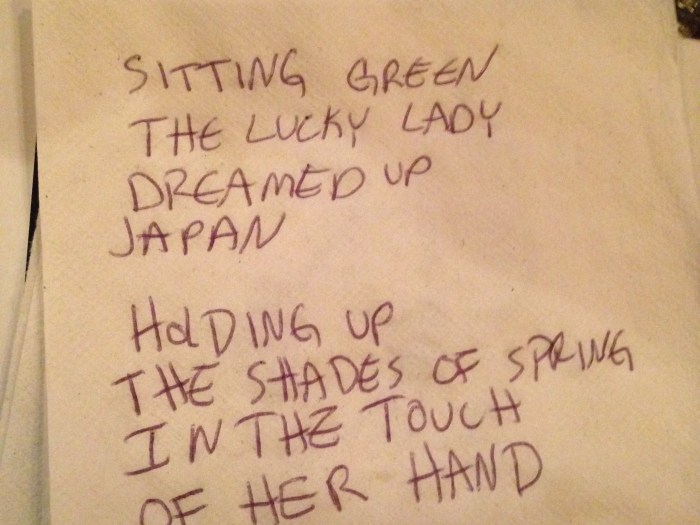 SITTING GREEN
THE LUCKY LADY
DREAMED UP
JAPAN
HOLDING UP
THE SHADES OF SPRING
IN THE TOUCH
OF HER HAND